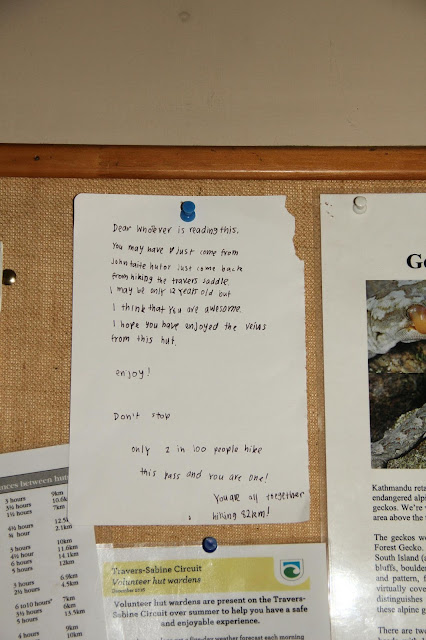 Dear whoever is reading this.
You may have just come from
John taite hut or just come back
from hiking the travers saddle.
I may be only 12 years old but
I think that you are awesome.
I hope you have enjoyed the veiws
from this hut.
enjoy!
Don't stop
only 2 in 100 people hike
this pass and you are one!
You are all together
hiking 82km!
ances between hut
3 hours 9km
5½ hours 10.6k
1½ hours 7km
12.5
4½ hours 7km
½ hour 2.1km
10km
5 hours 11.6km
4 hours 14.1km
6 hours 12km
5 hours
6.9km
3 hours 4.5km
2½ hours
7km
6 to 10 hours* 6km
3½ hours 13.5km
5 hours
10km
4 hours 9km
Travers-Sabine Circuit
Volunteer hut wardens
December 2016
Volunteer hut wardens are present on the Travers-
Sabine Circuit over summer to help you have a safe
and enjoyable experience.
day weather forecast each morning
Ge
Kathmandu reta
endangered alpi
geckos. We're
area above the
The geckos wo
Forest Gecko.
South Island (a
bluffs, boulder
and pattern, f
virtually cove
distinguishes
these alpine g
There are two